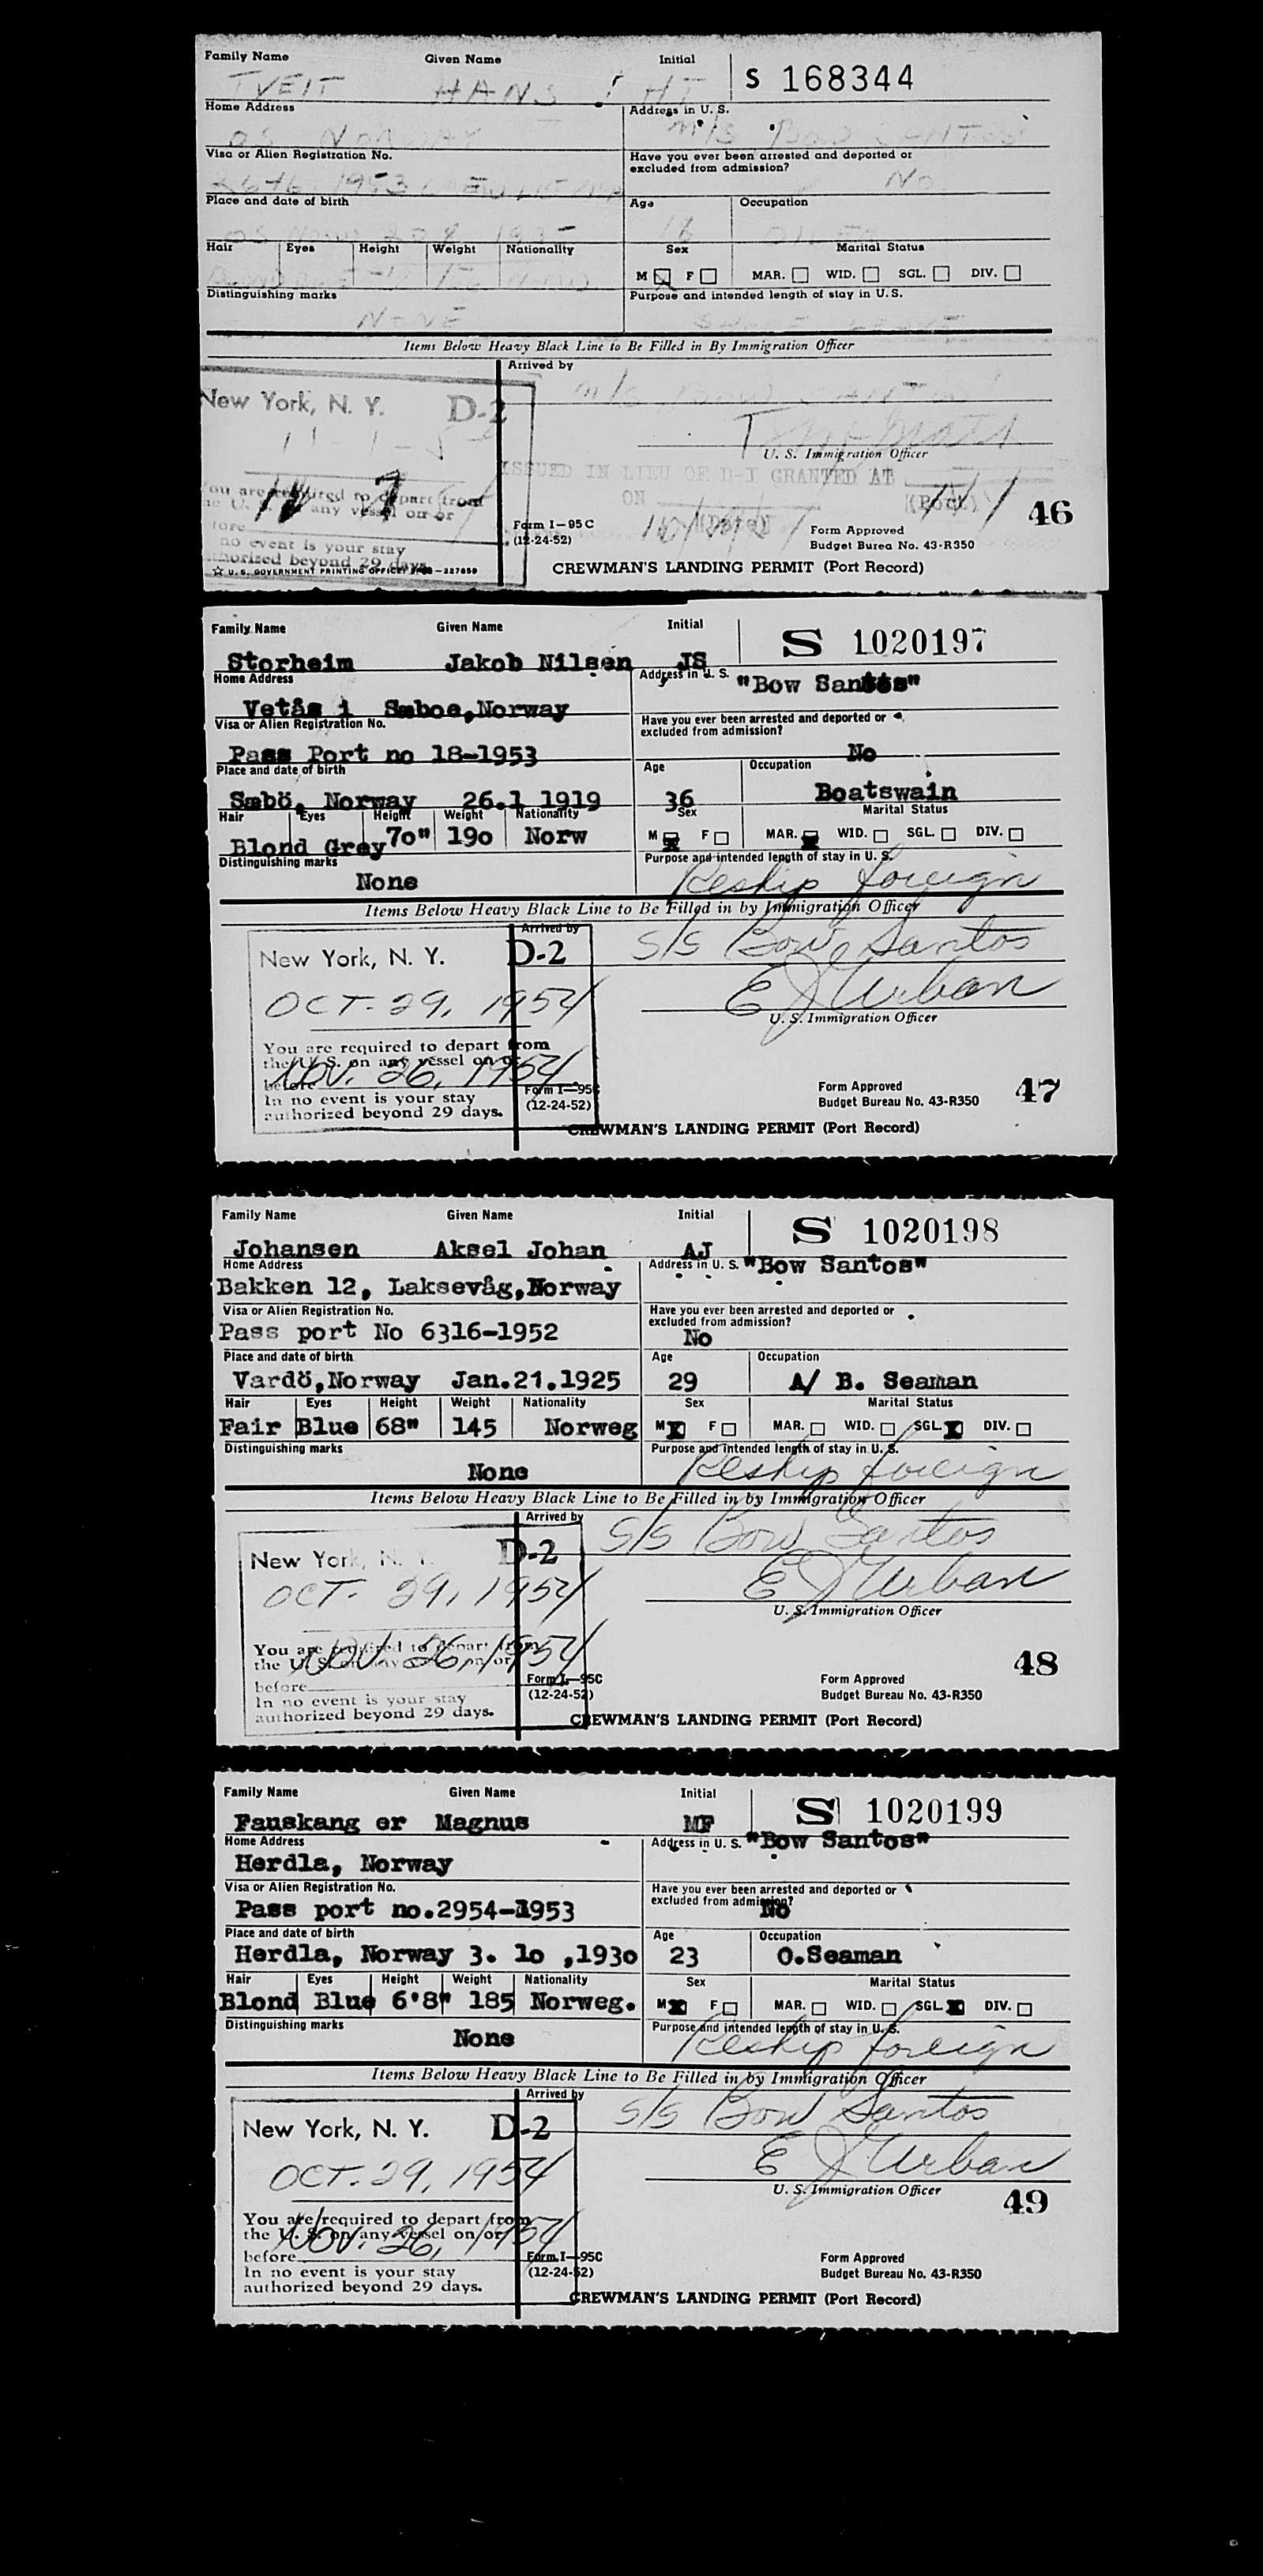 Family Name Given Name Initial S 168344
TVEIT HANS HT
Home Address Address in U. S.
OS NORWAY M/S BOW SANTOS
Visa or Alien Registration No. Have you ever been arrested and deported or
excluded from admission?
1953 No
Place and date of birth Age Occupation
Hair Eyes Height Weight Nationality Sex Marital Status
M F MAR. WID. SGL. DIV.
Distinguishing marks Purpose and intended length of stay in U. S.
NONE
Items Below Heavy Black Line to Be Filled in By Immigration Officer
Arrived by
New York, N. Y. D-2
U. S. Immigration Officer
ISSUED IN LIEU OF D-1 GRANTED AT
You are required to depart from
the U. S. on any vessel on or
before
ON (Date) (Port)
no event is your stay
authorized beyond 29 days.
Form I-95 C
(12-24-52)
Form Approved
Budget Burea No. 43-R350
46
☆ U. S. GOVERNMENT PRINTING OFFICE: —227859
CREWMAN'S LANDING PERMIT (Port Record)
Family Name Given Name Initial S 1020197
Storheim Jakob Nilsen JS
Home Address Address in U. S. "Bow Santos"
Vetås i Sæboe, Norway
Visa or Alien Registration No. Have you ever been arrested and deported or
excluded from admission?
Pass Port no 18-1953 No
Place and date of birth Age Occupation
Sæbö, Norway 26.1 1919 36 Boatswain
Hair Eyes Height Weight Nationality Sex Marital Status
Blond Grey 70" 190 Norw M F MAR. WID. SGL. DIV.
Distinguishing marks Purpose and intended length of stay in U. S.
None Reship foreign
Items Below Heavy Black Line to Be Filled in by Immigration Officer
Arrived by
New York, N. Y. D-2 S/S Bow Santos
OCT. 29, 1954 E J Urban
U. S. Immigration Officer
You are required to depart from
the U. S. on any vessel on or
before Nov. 26, 1954
In no event is your stay
authorized beyond 29 days.
Form I-95C
(12-24-52)
Form Approved
Budget Bureau No. 43-R350
47
CREWMAN'S LANDING PERMIT (Port Record)
Family Name Given Name Initial S 1020198
Johansen Aksel Johan AJ
Home Address Address in U. S. "Bow Santos"
Bakken 12, Laksevåg, Norway
Visa or Alien Registration No. Have you ever been arrested and deported or
excluded from admission?
Pass port No 6316-1952 No
Place and date of birth Age Occupation
Vardö, Norway Jan.21.1925 29 A/ B. Seaman
Hair Eyes Height Weight Nationality Sex Marital Status
Fair Blue 68" 145 Norweg M F MAR. WID. SGL. DIV.
Distinguishing marks Purpose and intended length of stay in U. S.
None Reship foreign
Items Below Heavy Black Line to Be Filled in by Immigration Officer
Arrived by
New York, N. Y. D-2 S/S Bow Santos
OCT. 29, 1954 E J Urban
U. S. Immigration Officer
You are required to depart from
the U. S. on any vessel on or
Nov. 26, 1954
before
In no event is your stay
authorized beyond 29 days.
Form I-95C
(12-24-52)
Form Approved
Budget Bureau No. 43-R350
48
CREWMAN'S LANDING PERMIT (Port Record)
Family Name Given Name Initial S 1020199
Fauskang er Magnus MF
Home Address Address in U. S. "Bow Santos"
Herdla, Norway
Visa or Alien Registration No. Have you ever been arrested and deported or
excluded from admission?
Pass port no.2954-1953 No
Place and date of birth Age Occupation
Herdla, Norway 3. 10 ,1930 23 O.Seaman
Hair Eyes Height Weight Nationality Sex Marital Status
Blond Blue 6'8" 185 Norweg. M F MAR. WID. SGL. DIV.
Distinguishing marks Purpose and intended length of stay in U. S.
None Reship foreign
Items Below Heavy Black Line to Be Filled in by Immigration Officer
Arrived by
New York, N. Y. D-2 S/S Bow Santos
OCT. 29, 1954 E J Urban
U. S. Immigration Officer
49
You are required to depart from
the U. S. on any vessel on or
Nov. 26, 1954
before
In no event is your stay
authorized beyond 29 days.
Form I-95C
(12-24-52)
Form Approved
Budget Bureau No. 43-R350
CREWMAN'S LANDING PERMIT (Port Record)